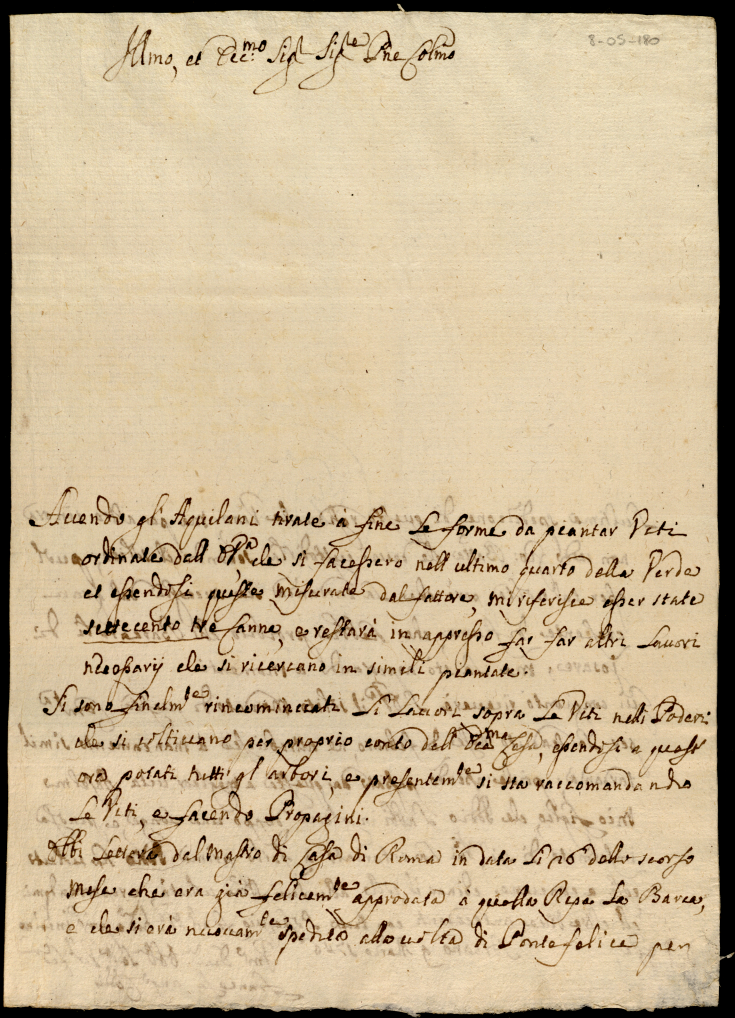 8-05-180
Illmo, et Ecc.mo Sig.r Sig.re Pne Colmo
Avendo gl'Aquilani tirate à fine Le forme da piantar Viti
ordinate dall'E.V.a che si facessero nell'ultimo quarto della Verde
et essendosi queste misurate dal fattore, mi riferisce esser state
settecento tre Canne, e restarà in appresso far far altri Lavori
necessarij che si ricercano in simili piantate.
Si sono finalm.te rincominciati Li Lavori sopra Le Viti nelli Poderi
che si coltivano per proprio conto dell'Ecc.ma Casa, essendosi a quest'
ora potati tutti gl'arbori, e presentem.te si sta raccomandando
Le Viti, e facendo Propagini.
Ebbi Lettera dal Mastro di Casa di Roma in data Li 26 dello scorso
Mese che era già felicem.te approdata à quella Ripa La Barca,
e che si era nuovam.te spedita alla volta di Ponte felice per